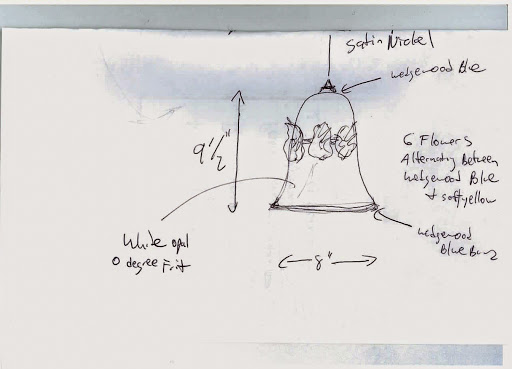 Satin Nickel
wedgewood Blue
9 1/2"
6 Flowers
Alternating Between
wedgewood Blue
+ soft yellow
wedgewood
Blue
White opal
0 degree Frit
8"